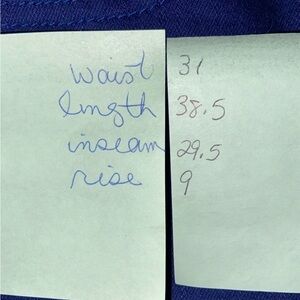 waist 31
length 38.5
inseam 29.5
rise 9